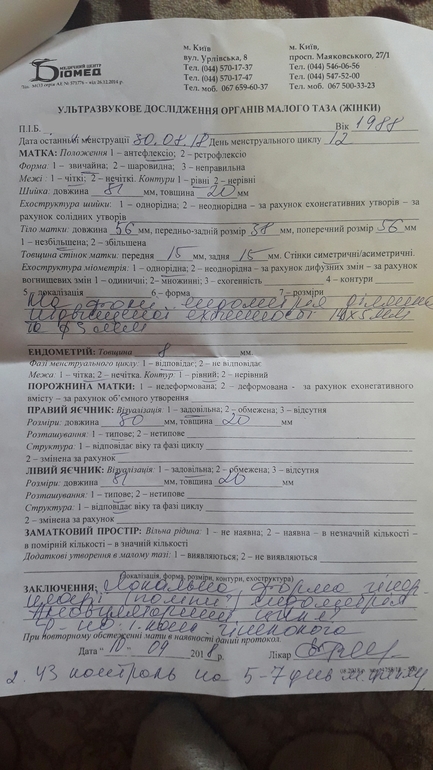 МЕДИЧНИЙ ЦЕНТР
БІОМЕД
Ліц. МОЗ серія АЕ № 571774 – від 26.12.2014 р.
м. Київ
вул. Урлівська, 8
Тел. (044) 570-17-37
Тел. (044) 570-17-47
Тел. моб. 067 659-60-37
м. Київ,
просп. Маяковського, 27/1
Тел. (044) 546-06-56
Тел. (044) 547-52-00
Тел. моб. 067 500-33-23
УЛЬТРАЗВУКОВЕ ДОСЛІДЖЕННЯ ОРГАНІВ МАЛОГО ТАЗА (ЖІНКИ)
П.І.Б. Вік 1988
Дата останньої менструації 30.08.18 День менструального циклу 12
МАТКА: Положення 1 – антефлексіо; 2 – ретрофлексіо
Форма: 1 – звичайна; 2 – шаровидна; 3 – неправильна
Межі: 1 – чіткі; 2 – нечіткі. Контури 1 – рівні 2 – нерівні
Шийка: довжина мм, товщина 20 мм
Ехоструктура шийки: 1 – однорідна; 2 – неоднорідна – за рахунок ехонегативних утворів – за
рахунок солідних утворів
Тіло матки: довжина 56 мм, передньо-задній розмір 38 мм, поперечний розмір 56 мм
1 – незбільшена; 2 – збільшена
Товщина стінок матки: передня 15 мм, задня 15 мм. Стінки симетричні/асиметричні.
Ехоструктура міометрія: 1 – однорідна; 2 – неоднорідна – за рахунок дифузних змін – за рахунок
вогнищевих змін 1 – одиничні; 2 – множинні; 3 – ехогенність 4 – контури
5 – локалізація 6 – форма 7 – розміри
На фоні ендометрія ділянка
підвищеної ехогенності 14х5мм
та ф5мм
ЕНДОМЕТРІЙ: Товщина 8 мм
Фазі менструального циклу: 1 – відповідає; 2 – не відповідає
Межа: 1 – чітка; 2 – нечітка. Контур: 1 – рівний; 2 – нерівний
ПОРОЖНИНА МАТКИ: 1 – недеформована; 2 – деформована - за рахунок ехонегативного
вмісту – за рахунок об'ємного утворення
ПРАВИЙ ЯЄЧНИК: Візуалізація: 1 – задовільна; 2 – обмежена; 3 – відсутня
Розміри: довжина 30 мм, товщина 20 мм
Розташування: 1 – типове; 2 – нетипове
Структура: 1 – відповідає віку та фазі циклу
2 – змінена за рахунок
ЛІВИЙ ЯЄЧНИК: Візуалізація: 1 – задовільна; 2 – обмежена; 3 – відсутня
Розміри: довжина мм, товщина 20 мм
Розташування: 1 – типове; 2 – нетипове
Структура: 1 – відповідає віку та фазі циклу
2 – змінена за рахунок
ЗАМАТКОВИЙ ПРОСТІР: Вільна рідина: 1 – не наявна; 2 – наявна – в незначній кількості –
в помірній кількості – в значній кількості
Додаткові утворення в малому тазі: 1 – виявляються; 2 – не виявляються
(локалізація, форма, розміри, контури, ехоструктура)
ЗАКЛЮЧЕННЯ: Локальна форма гіпер-
поліпи ендометрія
При повторному обстеженні мати в наявності даний протокол.
Дата "10" 09 2018 р. Лікар
2. УЗ контроль на 5-7 день м. циклу